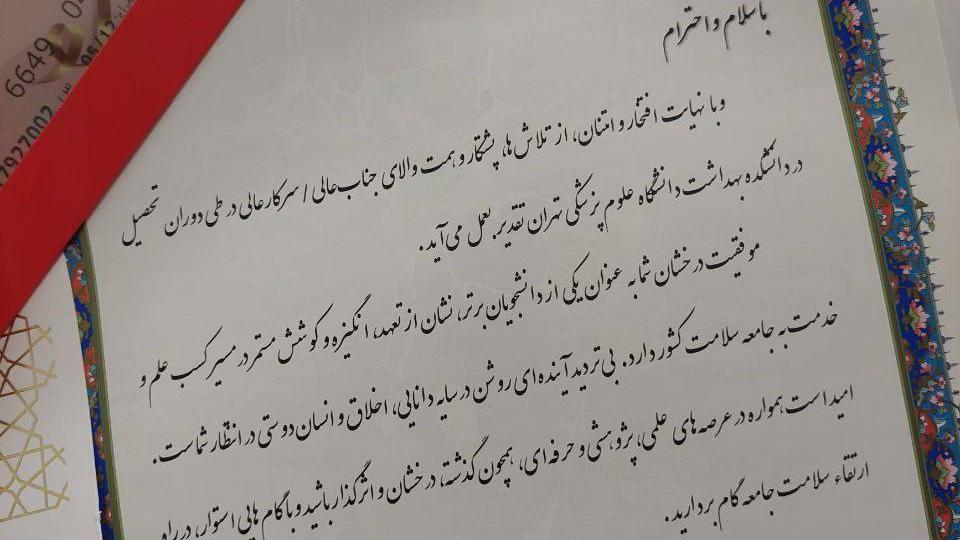 با سلام و احترام
و با نهایت افتخار و امتنان، از تلاش‌ها، پشتکار و همت والای جناب‌عالی / سرکار عالی در طی دوران تحصیل
در دانشکده بهداشت دانشگاه علوم پزشکی تهران تقدیر بعمل می‌آید.
موفقیت درخشان شما به عنوان یکی از دانشجویان برتر، نشان از تعهد، انگیزه و کوشش مستمر در مسیر کسب علم و
خدمت به جامعه سلامت کشور دارد. بی‌تردید آینده‌ای روشن در سایه دانایی، اخلاق و انسان دوستی در انتظار شماست.
امید است همواره در عرصه‌های علمی، پژوهشی و حرفه‌ای، همچون گذشته، درخشان و اثرگذار باشید و با گام هایی استوار، در راه
ارتقاء سلامت جامعه گام بردارید.
6649
05/12
2927002